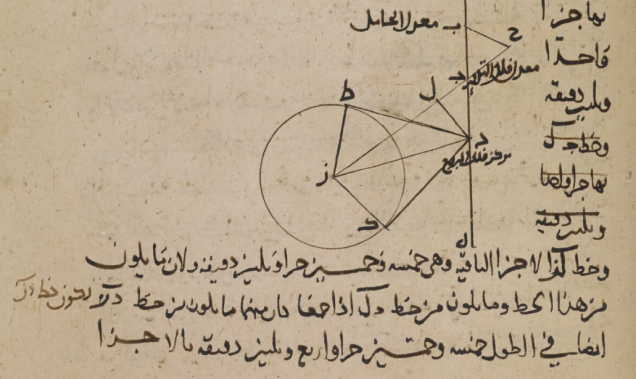 بها جزا
واحدا
وثلثين دقيقه
وخط
بها جزا واحدا
وثلثين دقيقه
ب معدل الحامل
ح
ل
ط
د
مركز فلك البروج
ز
وخط الاجزا الباقيه وهي خمسه وخمسين جزا وثلثين دقيقه ولان ما يكون
من هذا الخط وما يكون من خط دك اذا جمعا كان منهما ما يكون من خط يكون خط
ايضا في الطول خمسه وخمسين جزا واربع وثلثين دقيقه بالاجزا